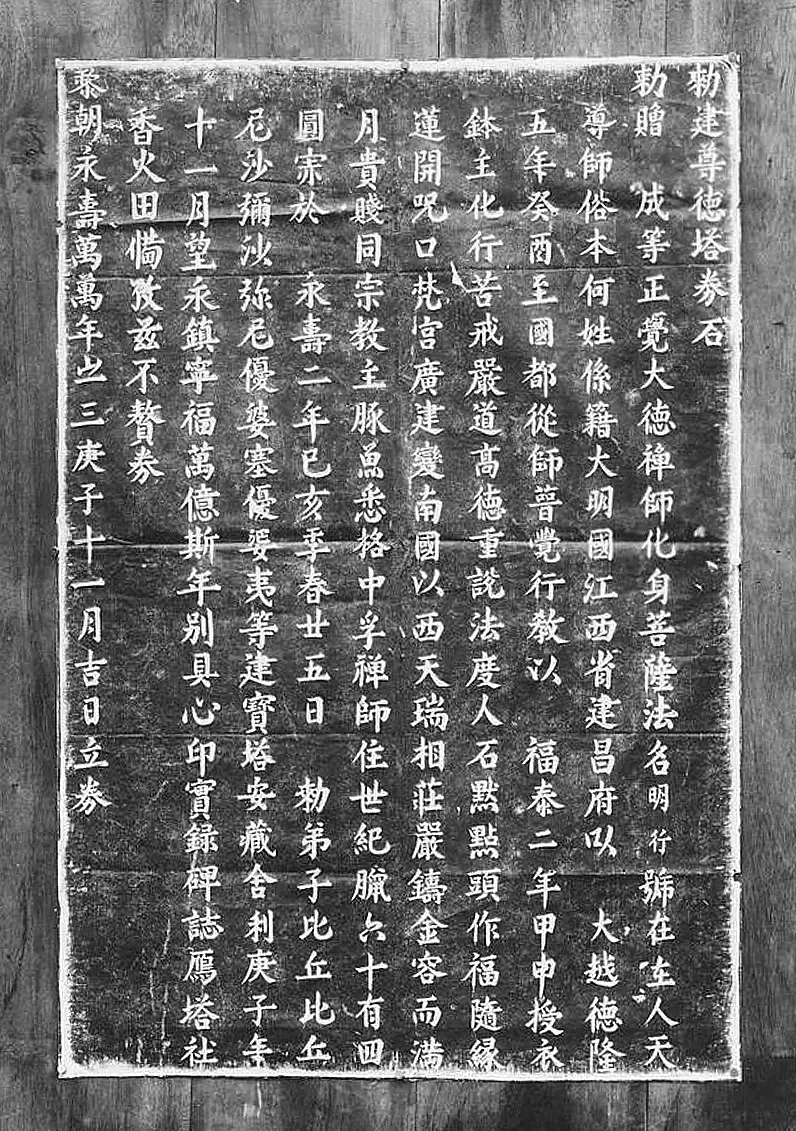 勅建尊德塔券石
勅贈 成等正覺大德禪師化身菩薩法名明行號在在人天
導師俗本何姓係籍大明國江西省建昌府以 大越德隆
五年癸酉至國都從師普覺行教以 福泰二年甲申授衣
鉢主化行苦戒嚴道高德重說法度人石㸃㸃頭作福隨緣
蓮開咒口梵宫廣建變南國以西天瑞相莊嚴鑄金容而满
月貴賤同宗教主豚魚悉格中孚禪師住世紀臘六十有四
圓宗於 永壽二年己亥季春廿五日 勅弟子比丘比丘
尼沙彌沙弥尼優婆塞優婆夷等建寶塔安藏舍利庚子年
十一月望永鎮寧福萬億斯年別具心印實錄碑誌鴈塔社
香火田備攷兹不贅券
黎朝永壽萬萬年之三庚子十一月吉日立券